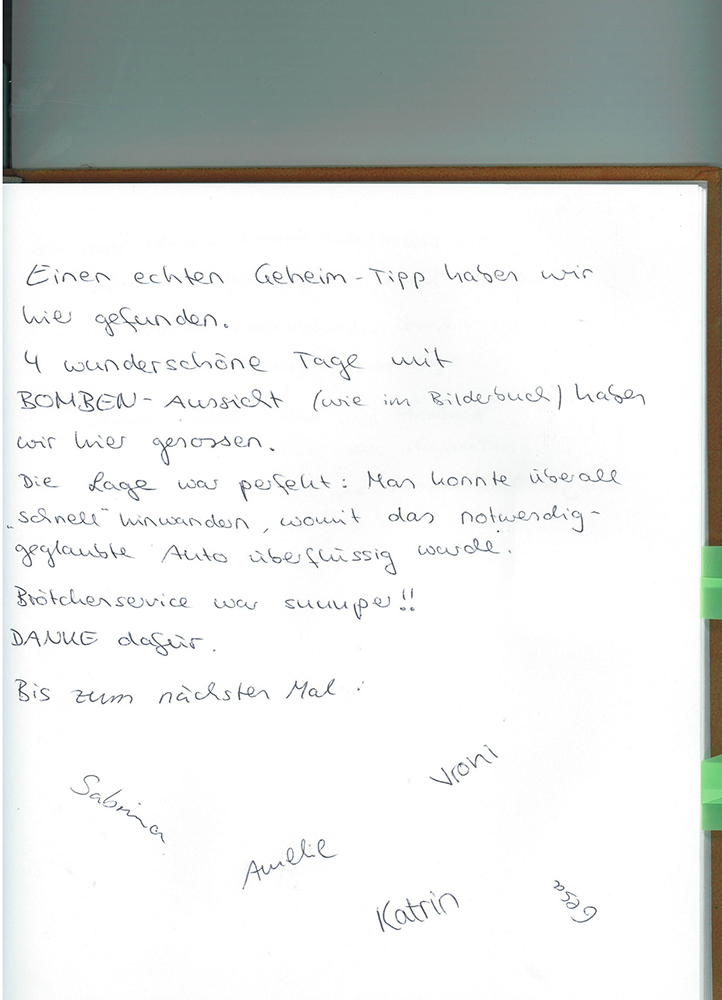 Einen echten Geheim-Tipp haben wir
hier gefunden.
4 wunderschöne Tage mit
BOMBEN-Aussicht (wie im Bilderbuch) haben
wir hier genossen.
Die Lage war perfekt: Man konnte überall
„schnell" hinwandern, womit das notwendig-
geglaubte Auto überflüssig wurde.
Brötchenservice war suuuper!!
DANKE dafür.
Bis zum nächsten Mal:
Vroni
Sabrina
Amelie
Katrin
Gesa